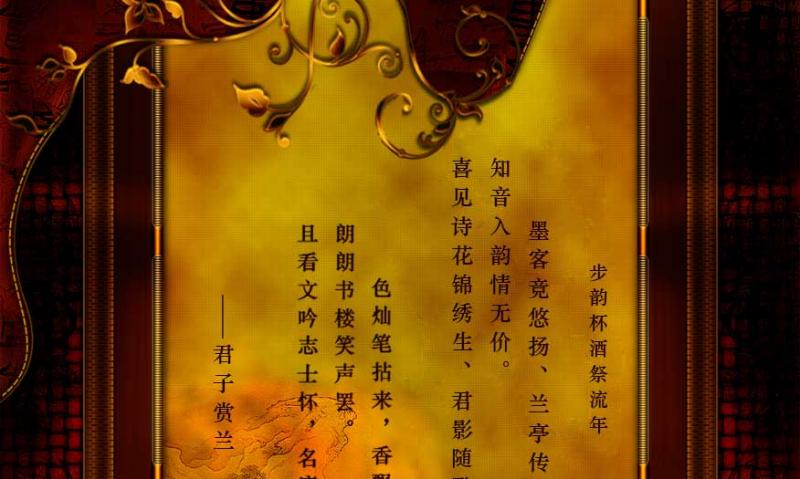 步韵杯酒祭流年
墨客竞悠扬、兰亭传
知音入韵情无价。
喜见诗花锦绣生、君影随
色灿笔拈来，香飘
朗朗书楼笑声罢。
且看文吟志士怀，名
——君子赏兰